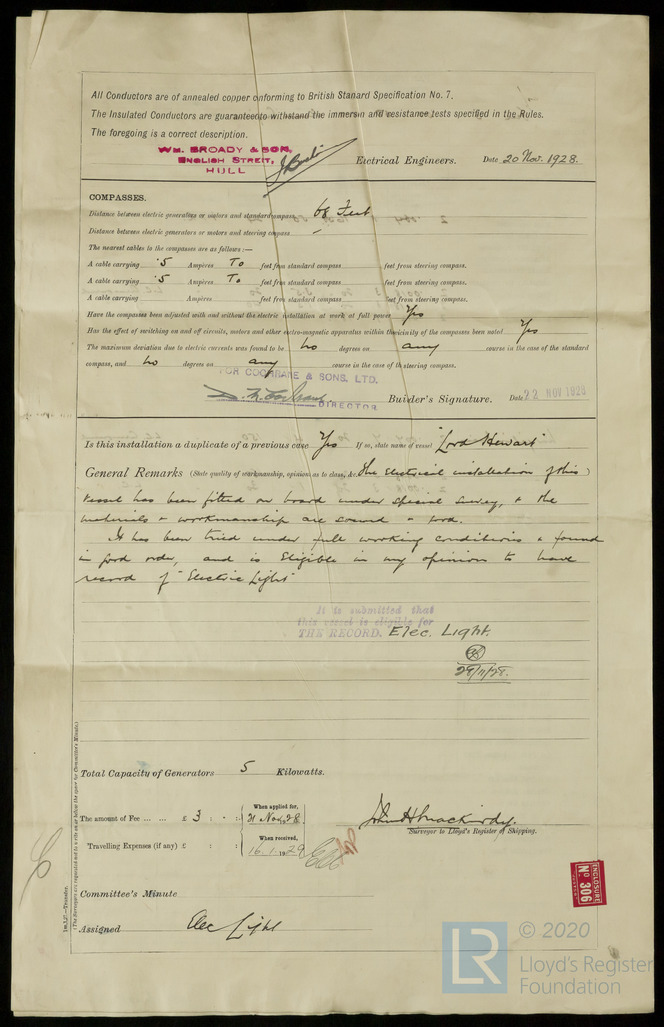 All Conductors are of annealed copper conforming to British Stanard Specification No. 7.
The Insulated Conductors are guaranteed to withstand the immersion and resistance tests specified in the Rules.
The foregoing is a correct description.
WM. BROADY & SON,
ENGLISH STREET,
HULL
Electrical Engineers. Date 20 Nov. 1928.
COMPASSES.
Distance between electric generators or motors and standard compass 68 Feet
Distance between electric generators or motors and steering compass
The nearest cables to the compasses are as follows:—
A cable carrying .5 Ampères To feet from standard compass feet from steering compass.
A cable carrying .5 Ampères To feet from standard compass feet from steering compass.
A cable carrying Ampères feet from standard compass feet from steering compass.
Have the compasses been adjusted with and without the electric installation at work at full power Yes
Has the effect of switching on and off circuits, motors and other electro-magnetic apparatus within the vicinity of the compasses been noted Yes
The maximum deviation due to electric currents was found to be No degrees on any course in the case of the standard
compass, and No degrees on any course in the case of the steering compass.
FOR COCHRANE & SONS, LTD.
DIRECTOR
Builder's Signature. Date 22 NOV 1928
Is this installation a duplicate of a previous case Yes If so, state name of vessel "Lord Hewart"
General Remarks (State quality of workmanship, opinions as to class, &c. The Electrical installation of this)
vessel has been fitted on board under special survey, & the
materials & workmanship are sound & good.
It has been tried under full working conditions & found
in good order, and is Eligible in my opinion to have
record of "Electric Light"
It is submitted that
this vessel is eligible for
THE RECORD. Elec. Light.
28/11/28.
Total Capacity of Generators 5 Kilowatts.
The amount of Fee ... ... £ 3 : - :
When applied for,
21 Nov. 28
Travelling Expenses (if any) £ : :
When received,
16.1.1929
Surveyor to Lloyd's Register of Shipping.
Committee's Minute
Assigned Elec Light
(The Surveyors are requested not to write on or below the space for Committee's Minute.)
ENCLOSURE
No 306
LR
© 2020
Lloyd's Register
Foundation